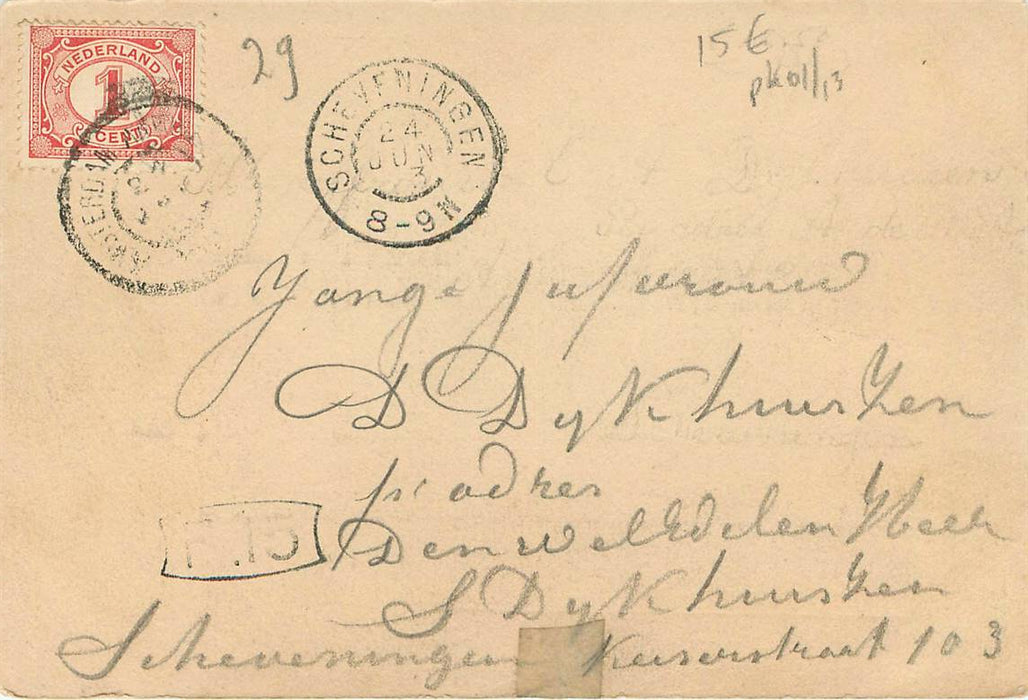 NEDERLAND
1
CENT
29
15 E
pk01/13
AMSTERDAM
SCHEVENINGEN
24
JUN
3
8-9N
Jonge Jufvrouw
D Dykhuishen
p. adres
Den wel Edelen Heer
S Dykhuishen
Scheveningen Keiserstraat 103